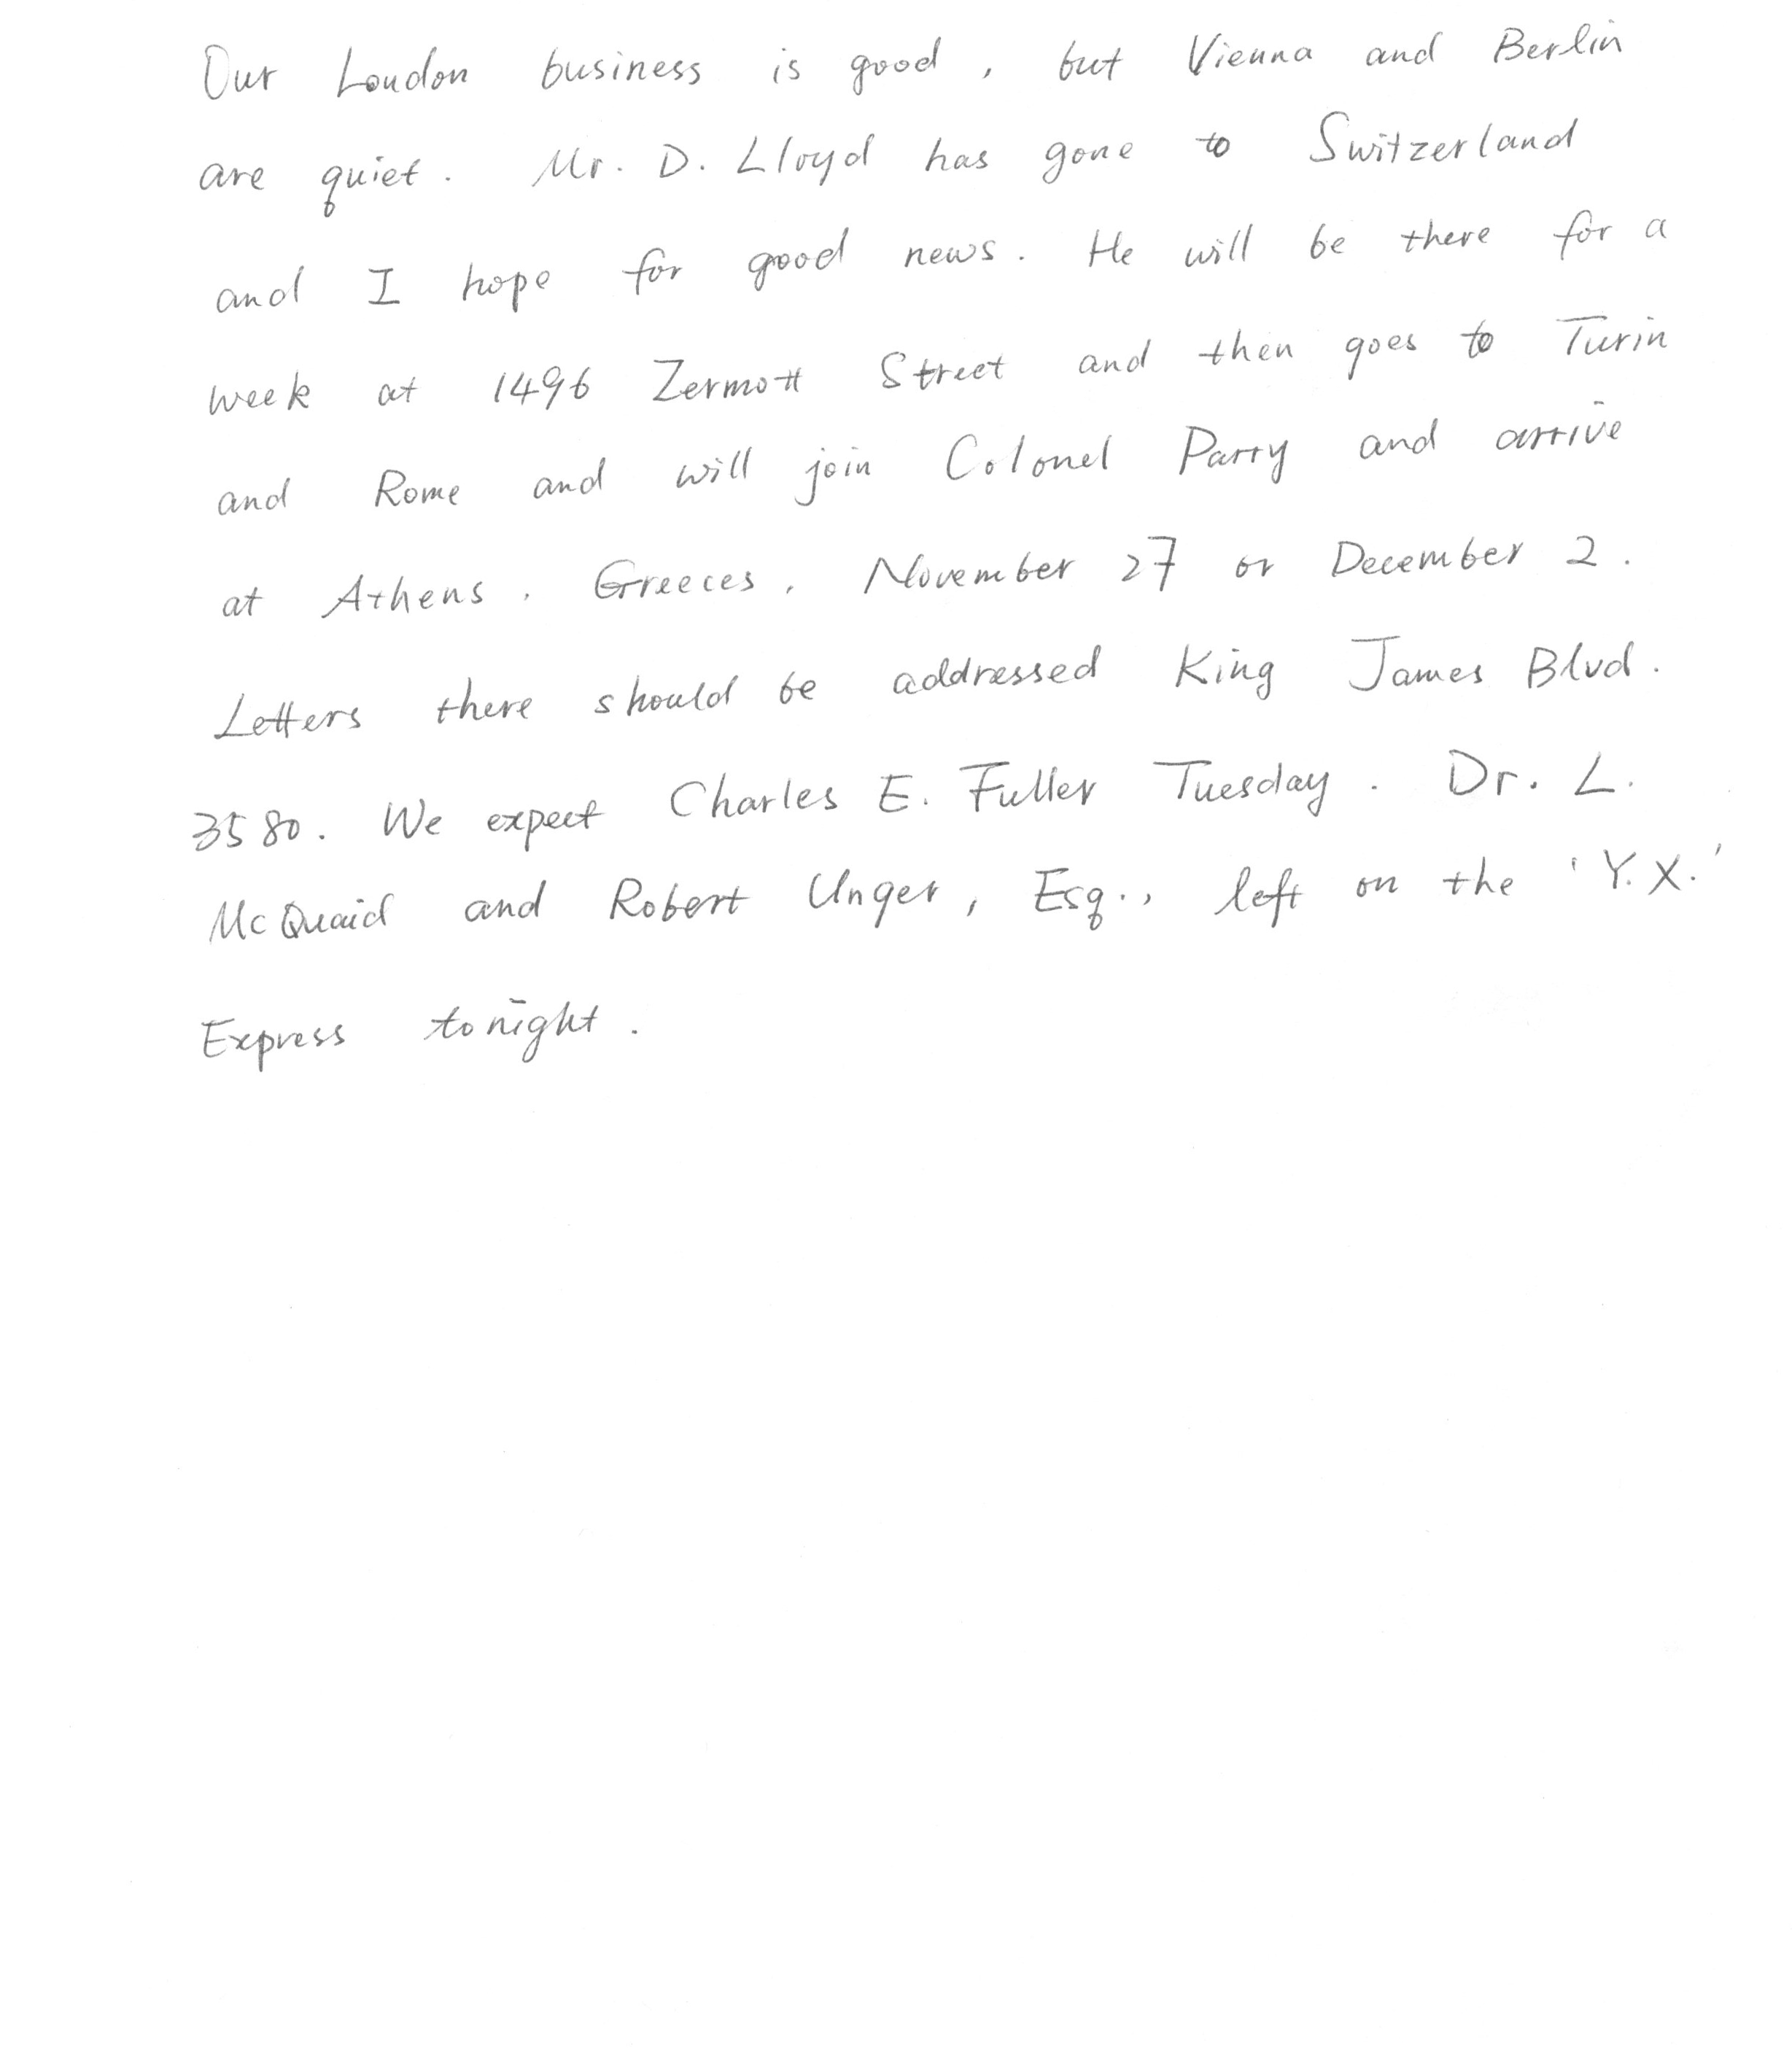 Our London business is good, but Vienna and Berlin
are quiet. Mr. D. Lloyd has gone to Switzerland
and I hope for good news. He will be there for a
week at 1496 Zermott Street and then goes to Turin
and Rome and will join Colonel Parry and arrive
at Athens, Greeces, November 27 or December 2.
Letters there should be addressed King James Blvd.
3580. We expect Charles E. Fuller Tuesday. Dr. L.
McQuaid and Robert Unger, Esq., left on the 'Y.X.'
Express tonight.